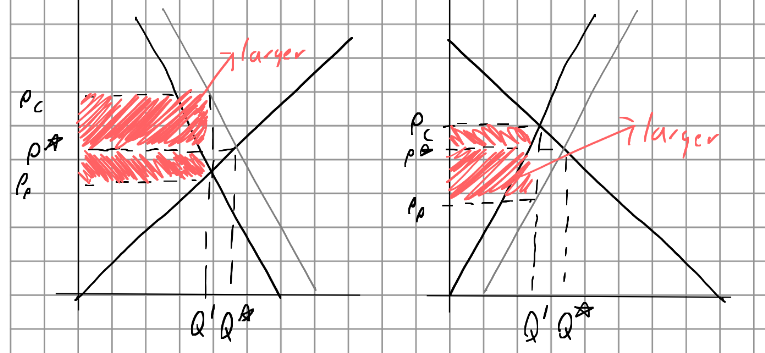 larger
Pc
P*
Pp
Q' Q*
larger
Pc
P*
Pp
Q' Q*